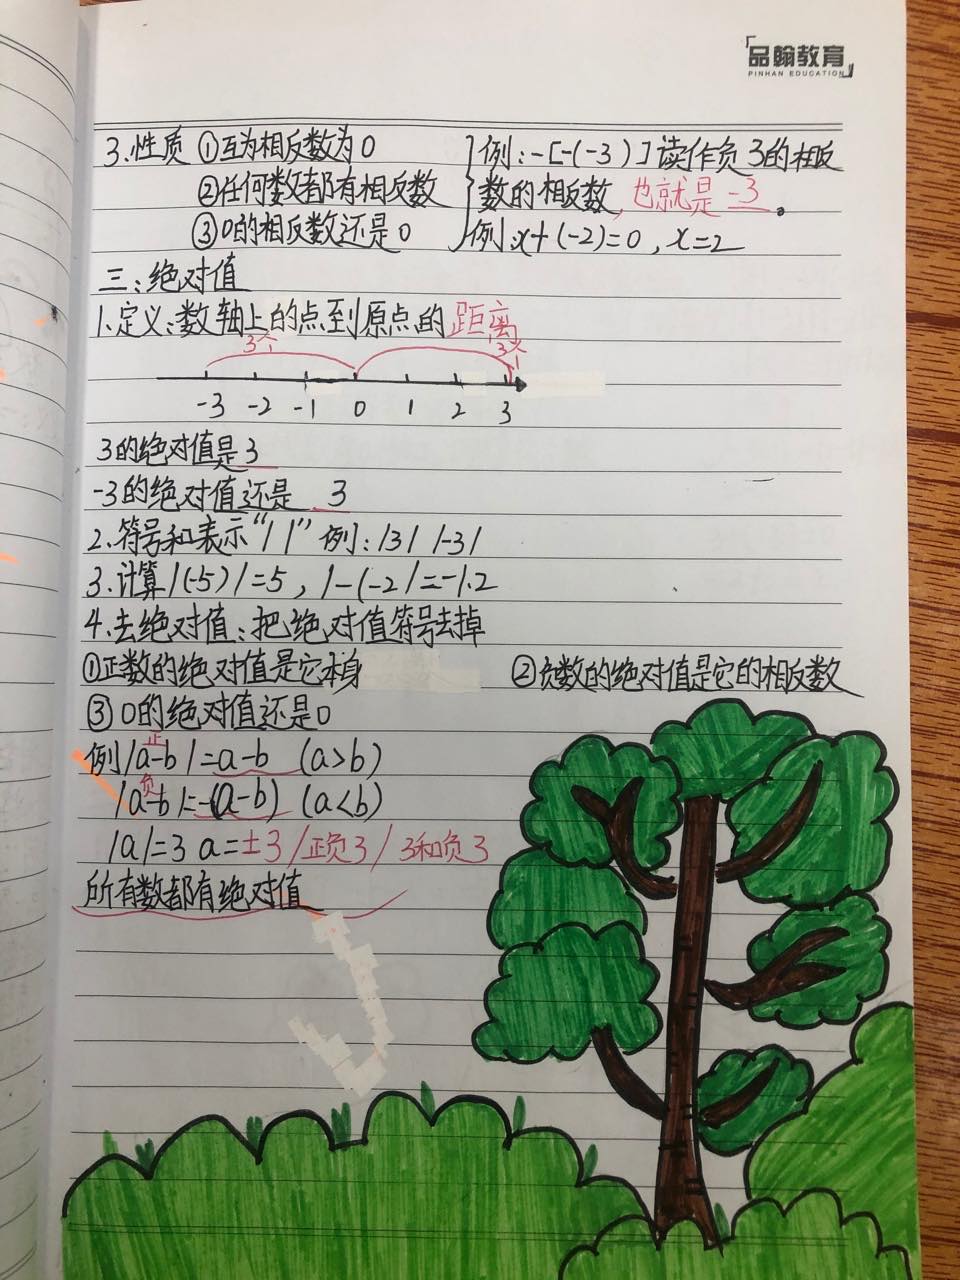 品翰教育
PINHAN EDUCATION
3.性质 ①互为相反数为0
②任何数都有相反数
③0的相反数还是0
例:-[-(-3)]读作负3的相反
数的相反数,也就是-3。
例:x+(-2)=0,x=2
三:绝对值
1.定义:数轴上的点到原点的距离
3个 3个
-3 -2 -1 0 1 2 3
3的绝对值是3
-3的绝对值还是 3
2.符号和表示“| |” 例:|3| |-3|
3.计算|(-5)|=5,|-(-2|=-1.2
4.去绝对值:把绝对值符号去掉
①正数的绝对值是它本身 ②负数的绝对值是它的相反数
③0的绝对值还是0
正
例|a-b|=a-b (a>b)
负
|a-b|=-(a-b) (a<b)
|a|=3 a=±3/正负3/3和负3
所有数都有绝对值